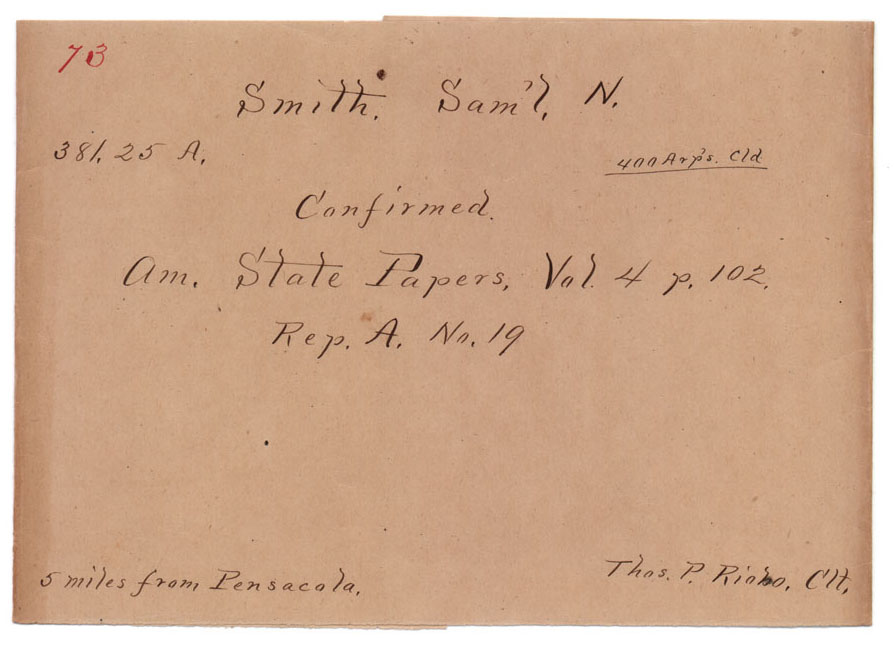 73
Smith, Sam'l, N.
381.25 A. 400 Arps. Cld
Confirmed.
Am. State Papers, Vol. 4 p. 102.
Rep. A. No. 19
5 miles from Pensacola. Thos. P. Clt.